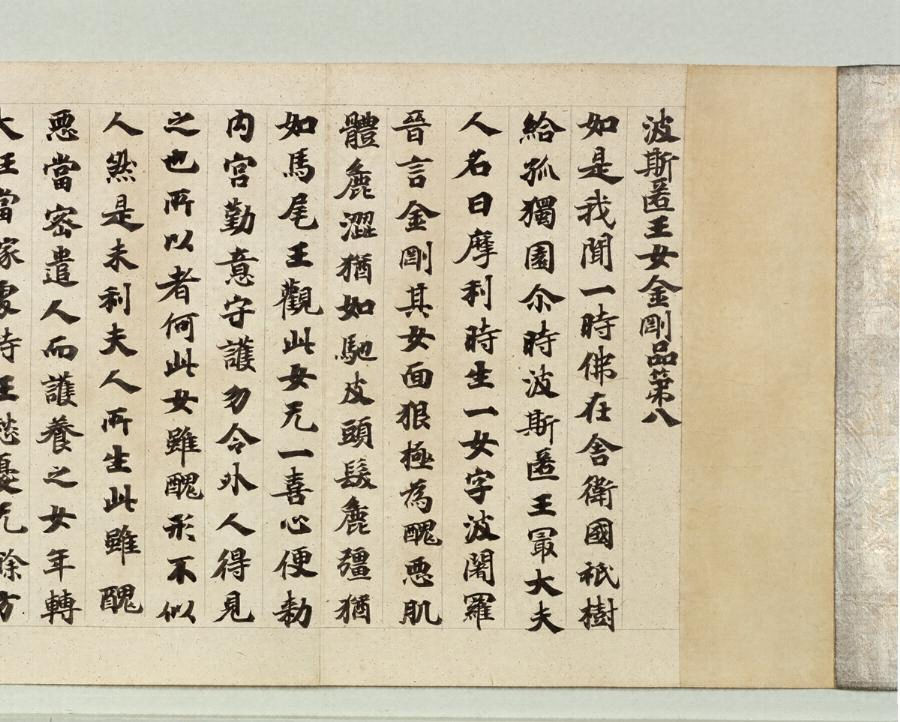 波斯匿王女金剛品第八
如是我聞一時佛在舍衛國祇樹
給孤獨園尒時波斯匿王冣大夫
人名曰摩利時生一女字波闍羅
晉言金剛其女面狠極為醜惡肌
體麁澀猶如馳皮頭髮麁彊猶
如馬尾王觀此女无一喜心便勑
内宮勤意守護勿令外人得見
之也所以者何此女雖醜形不似
人然是末利夫人所生此雖醜
惡當密遣人而護養之女年轉
大王當家處時王愁憂无餘方